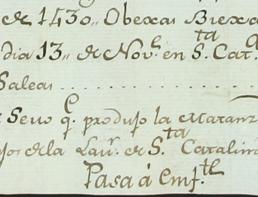 de 1430,, Obexas Biexa
dia 13,, de Nov.e en S.ta Cat.a
Saleas ..................
Sevo q.e produjo la Matanz
de la Lau.r de S.ta Catalin
Pasa á Emf.te